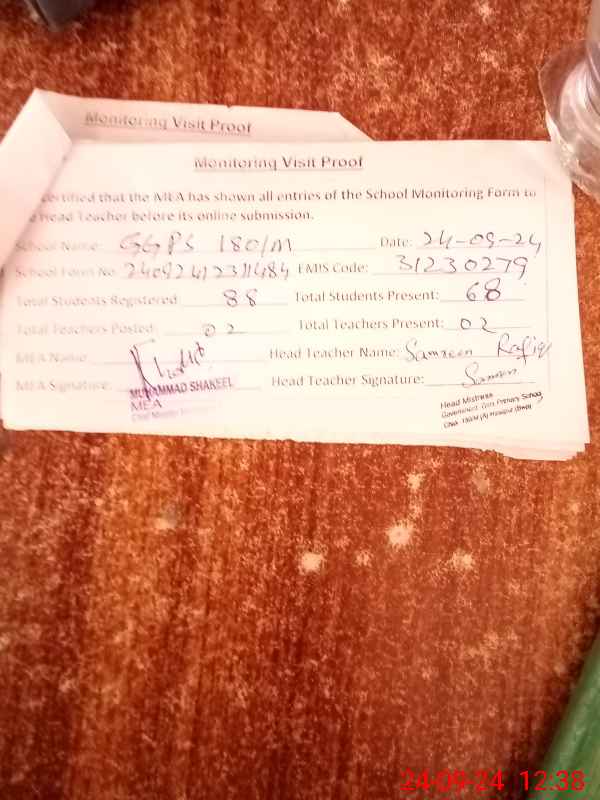 Monitoring Visit Proof
Monitoring Visit Proof
certified that the MEA has shown all entries of the School Monitoring Form to
Head Teacher before its online submission.
School Name: GGPS 180/M Date: 24-09-24
School Form No. EMIS Code: 31230279
Total Students Registered 88 Total Students Present: 68
Total Teachers Posted: 02 Total Teachers Present: 02
MEA Name: Head Teacher Name: Samreen Rafiq
MEA Signature: MUHAMMAD SHAKEEL Head Teacher Signature: Samreen
MEA
Head Mistress
Government Girls Primary School
24-09-24 12:38